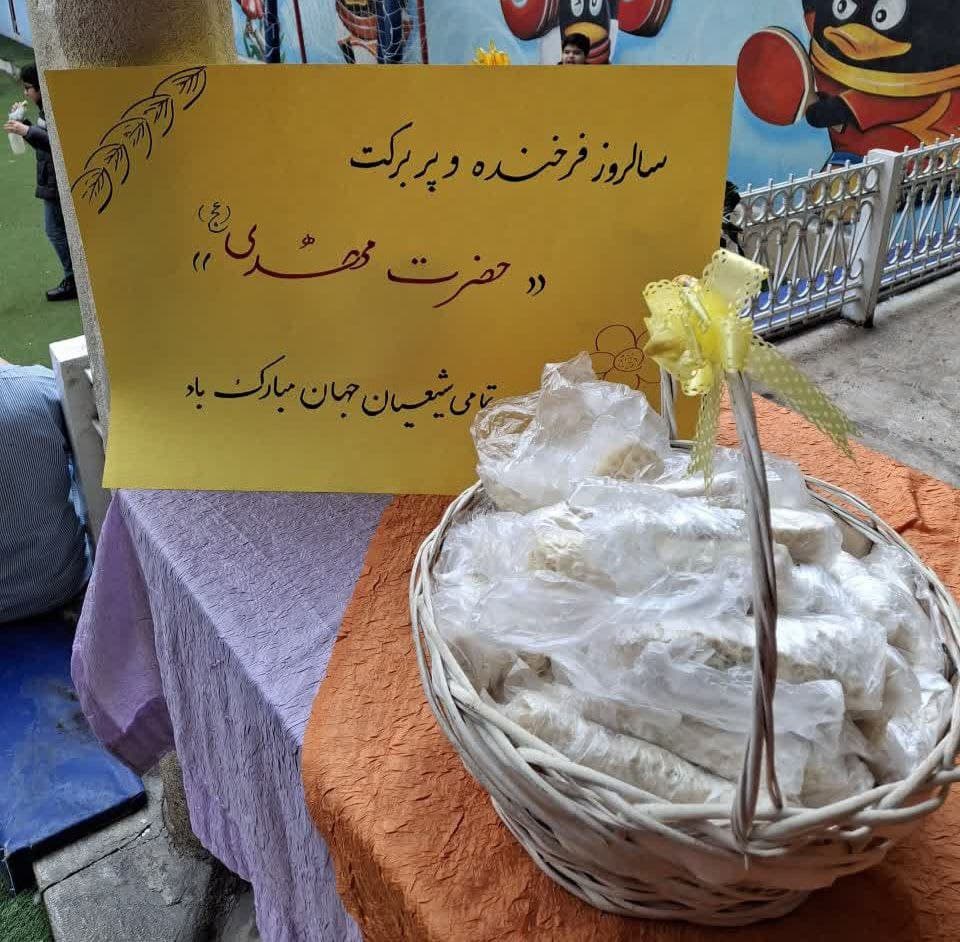 سالروز فرخنده و پر برکت
« حضرت مهدی (عج) »
تمامی شیعیان جهان مبارک باد